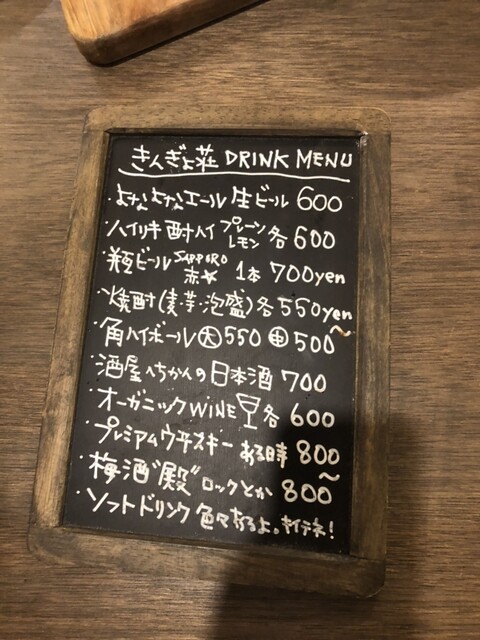 きんぎょ荘 DRINK MENU
・よなよなエール 生ビール 600
・ハイリキ酎ハイ プレーン レモン 各600
・瓶ビール SAPPORO 赤☆ 1本 700yen
・焼酎(麦・芋・泡盛)各550yen〜
・角ハイボール 大 550 中 500
・酒屋へちかんの日本酒 700
・オーガニックWiNE 各 600
・プレミアムウヰスキー ある時 800〜
・梅酒"殿" ロックとか 800
・ソフトドリンク 色々あるよ。キイテネ!